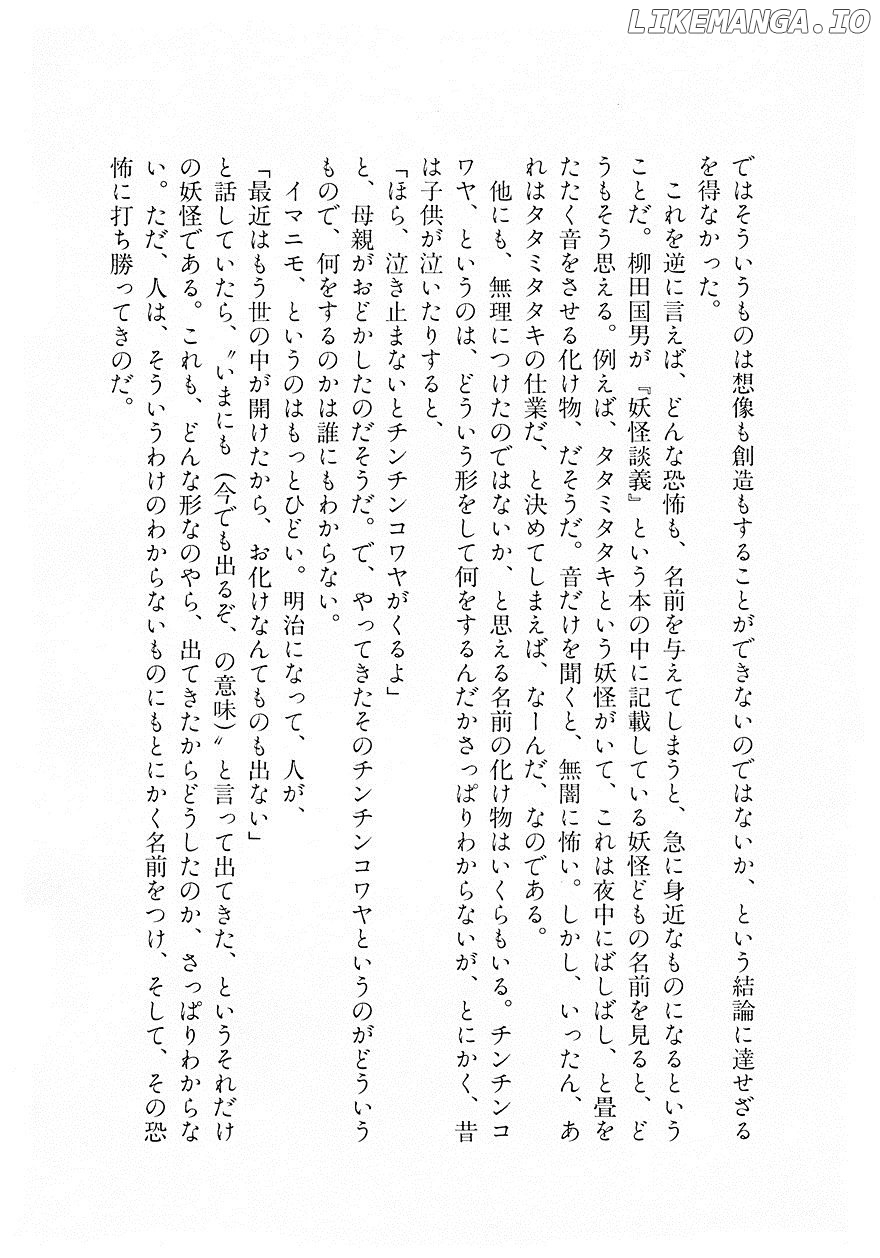 LIKEMANGA.IO
ではそういうものは想像も創造もすることができないのではないか、という結論に達せざる
を得なかった。
これを逆に言えば、どんな恐怖も、名前を与えてしまうと、急に身近なものになるという
ことだ。柳田国男が『妖怪談義』という本の中に記載している妖怪どもの名前を見ると、ど
うもそう思える。例えば、タタミタタキという妖怪がいて、これは夜中にばしばし、と畳を
たたく音をさせる化け物、だそうだ。音だけを聞くと、無闇に怖い。しかし、いったん、あ
れはタタミタタキの仕業だ、と決めてしまえば、なーんだ、なのである。
他にも、無理につけたのではないか、と思える名前の化け物はいくらもいる。チンチンコ
ワヤ、というのは、どういう形をして何をするんだかさっぱりわからないが、とにかく、昔
は子供が泣いたりすると、
「ほら、泣き止まないとチンチンコワヤがくるよ」
と、母親がおどかしたのだそうだ。で、やってきたそのチンチンコワヤというのがどういう
もので、何をするのかは誰にもわからない。
イマニモ、というのはもっとひどい。明治になって、人が、
「最近はもう世の中が開けたから、お化けなんてものも出ない」
と話していたら、〝いまにも（今でも出るぞ、の意味）〟と言って出てきた、というそれだけ
の妖怪である。これも、どんな形なのやら、出てきたからどうしたのか、さっぱりわからな
い。ただ、人は、そういうわけのわからないものにもとにかく名前をつけ、そして、その恐
怖に打ち勝ってきのだ。